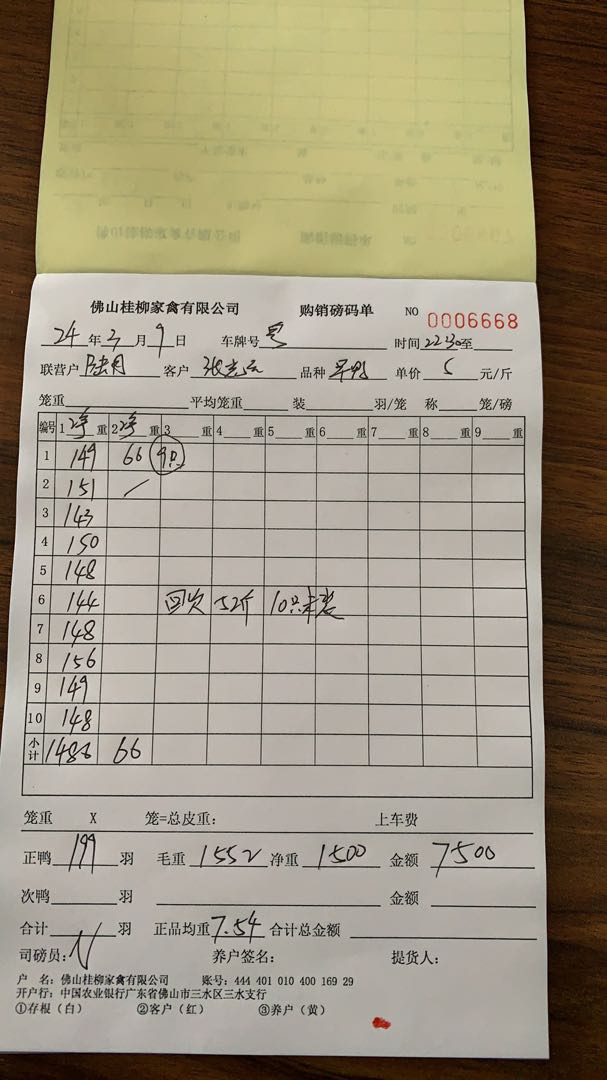 佛山桂柳家禽有限公司 购销磅码单 NO 0006668
24 年 3 月 9 日 车牌号 时间 22:30 至
联营户 客户 张志云 品种 单价 5 元/斤
笼重: 平均笼重: 装 羽/笼 称 笼/磅
编号 1 净 重 2 净 重 3 重 4 重 5 重 6 重 7 重 8 重 9 重
1 149 66 9只
2 151
3 143
4 150
5 148
6 144 回欠 52斤 10只未装
7 148
8 156
9 149
10 148
小计 1486 66
笼重 X 笼=总皮重: 上车费
正鸭 199 羽 毛重 1552 净重 1500 金额 7500
次鸭 羽 金额
合计 羽 正品均重 7.54 合计总金额
司磅员: 养户签名: 提货人:
户 名: 佛山桂柳家禽有限公司 账号: 444 401 010 400 169 29
开户行: 中国农业银行广东省佛山市三水区三水支行
①存根（白） ②客户（红） ③养户（黄）